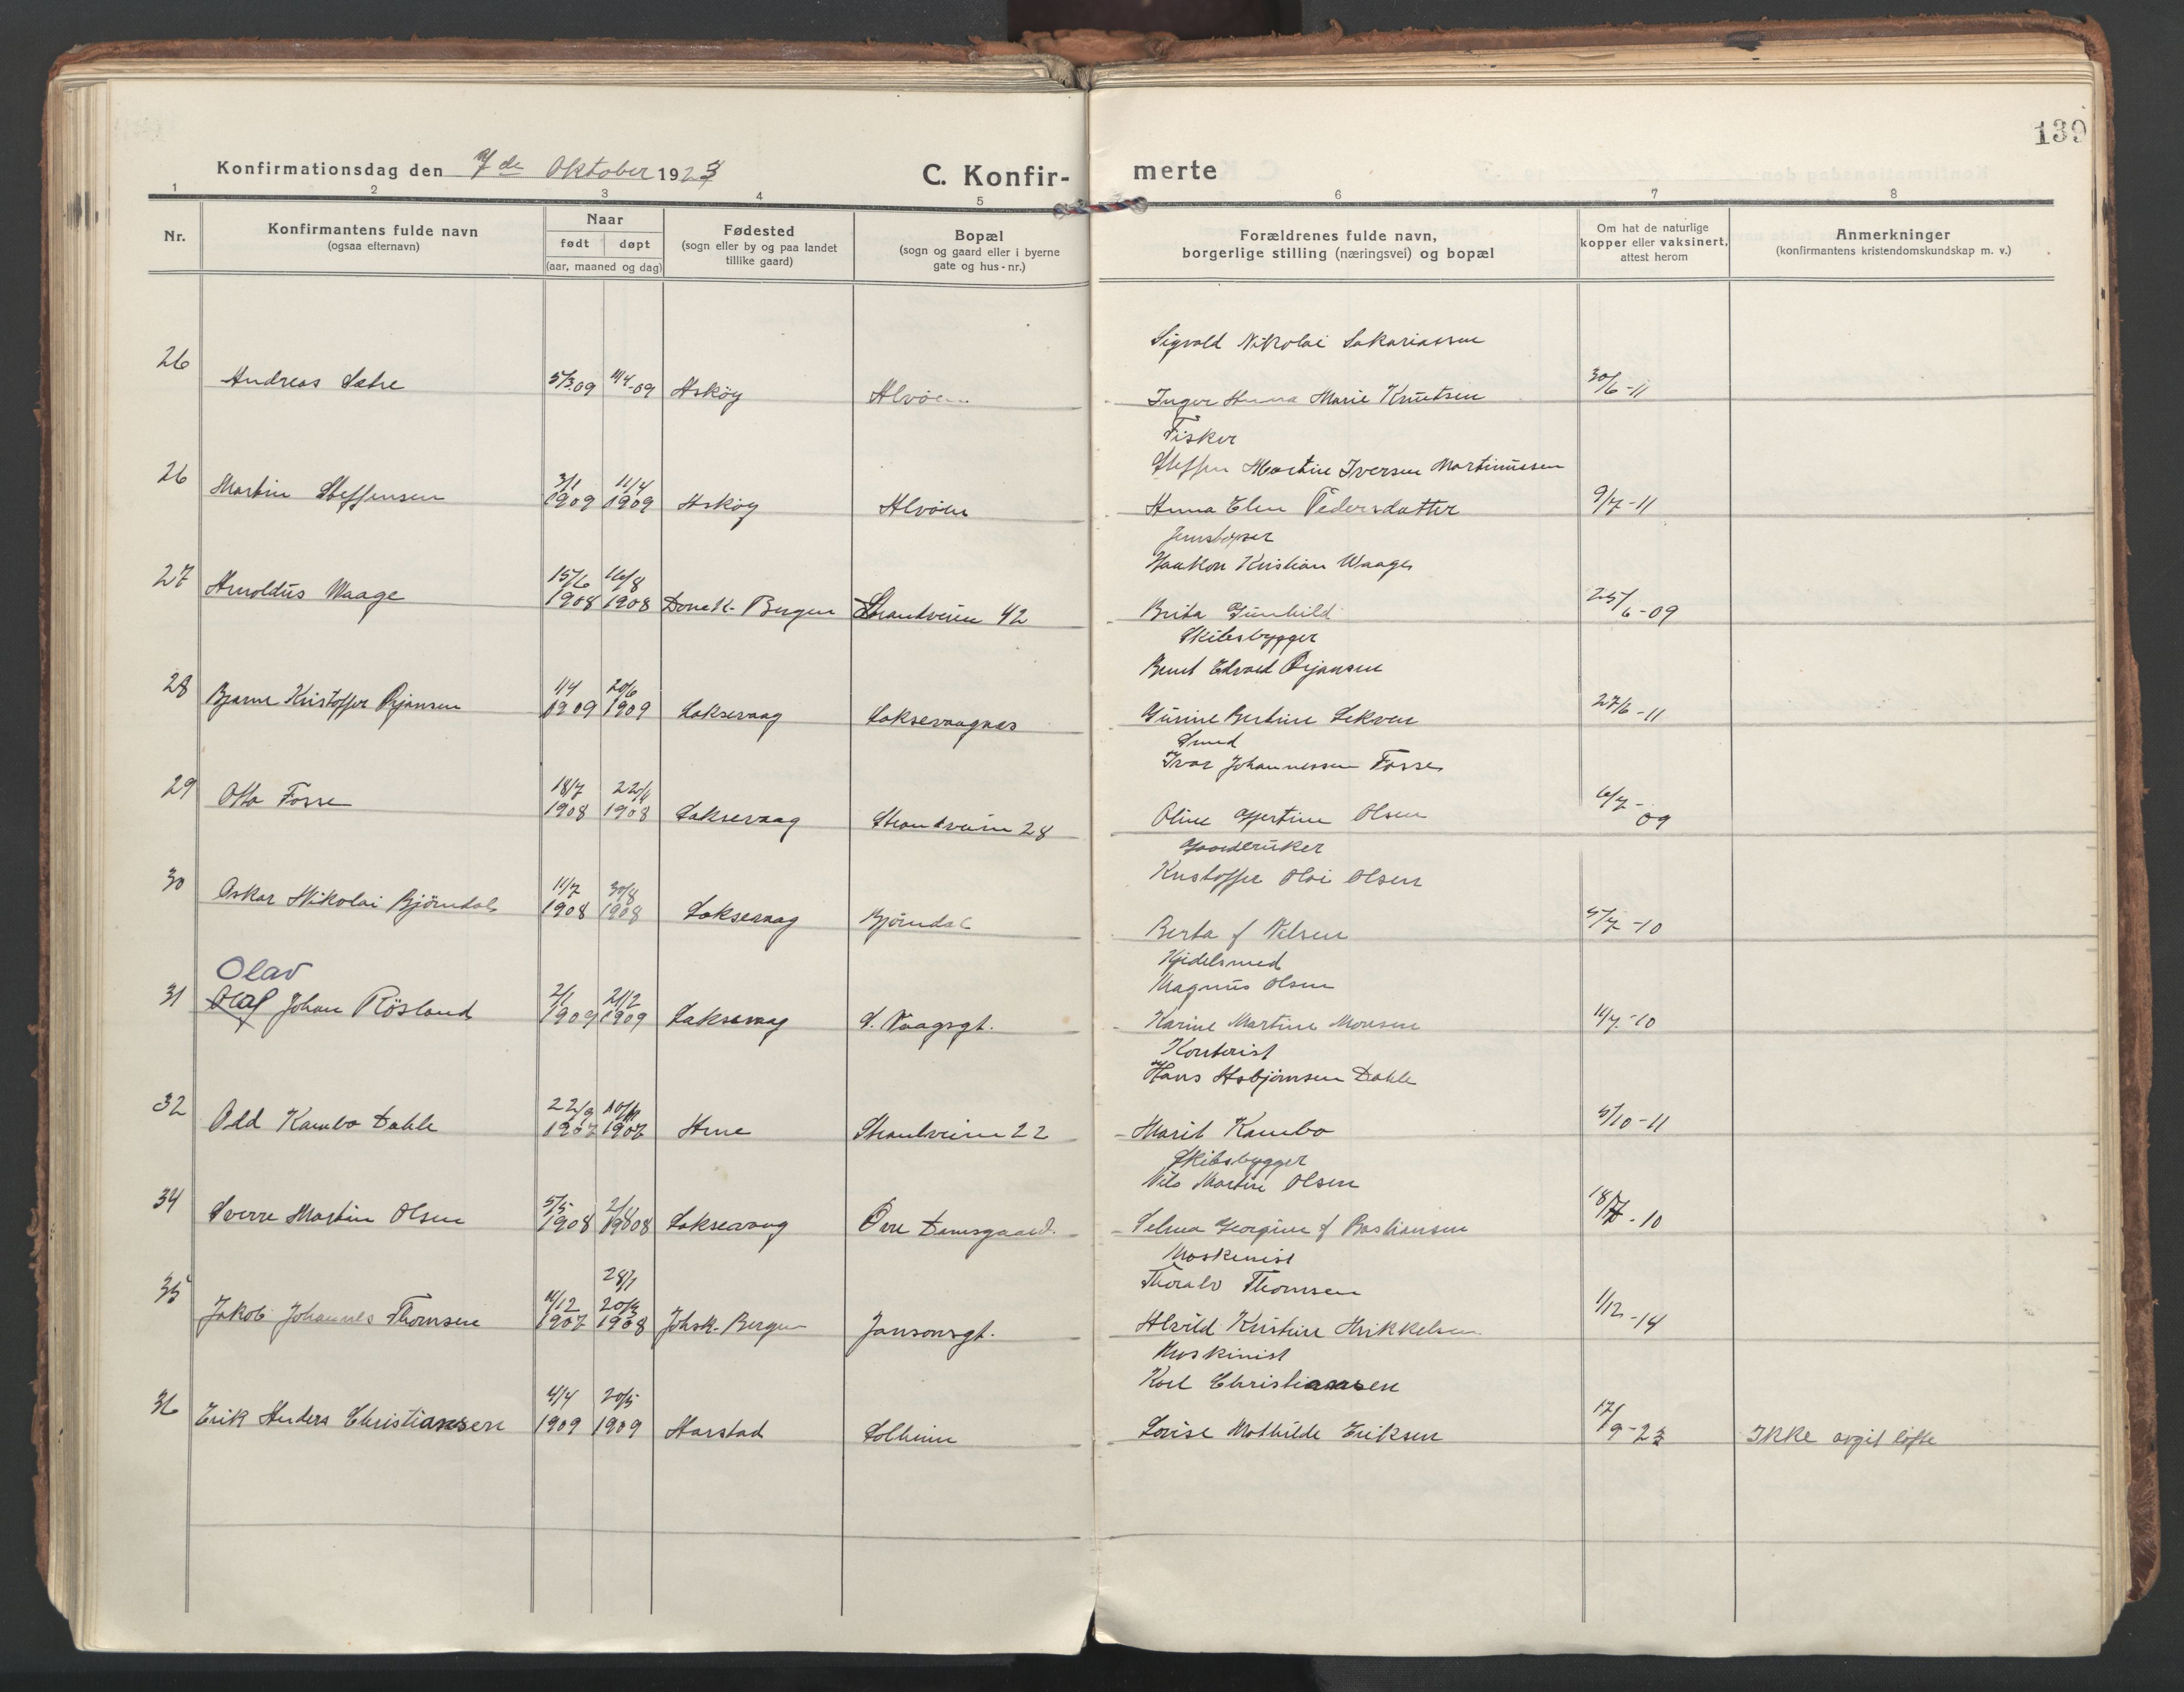 139
Konfirmationsdag den 7de Oktober 1923
C. Konfir- merte
1 2 3 4 5 6 7 8
Nr.
Konfirmantens fulde navn
(ogsaa efternavn)
Naar
født døpt
(aar, maaned og dag)
Fødested
(sogn eller by og paa landet
tillike gaard)
Bopæl
(sogn og gaard eller i byerne
gate og hus-nr.)
Forældrenes fulde navn,
borgerlige stilling (næringsvei) og bopæl
Om hat de naturlige
kopper eller vaksinert,
attest herom
Anmerkninger
(konfirmantens kristendomskundskap m. v.)
Sigvald Nikolai Sakariassen
26 Andreas Sætre 5/3.09 11/4-09 Askøy Alvøen Inger Anna Marie Knutsen 30/6-11
Fisker
Steffen Martin Iversen Martinussen
26 Martin Steffensen 3/1 1909 11/4 1909 Askøy Alvøen Anna Elen Pedersdatter 9/7-11
Jernstøper
Haakon Kristian Waage
27 Arnoldus Waage 15/6 1908 16/8 1908 Domk. Bergen Strandveien 42 Brita Gunhild 25/6-09
Skibsbygger
Bernt Edvard Ørjansen
28 Bjarne Kristoffer Ørjansen 1/4 1909 20/6 1909 Laksevaag Laksevaagnes Gurine Bertine Lekven 27/6-11
Smed
Ivar Johannessen Fosse
29 Otto Fosse 18/7 1908 1908 Laksevaag Strandveien 28 Oline Gjertine Olsen 6/7-09
Gaardbruker
Kristoffer Olai Olsen
30 Oskar Nikolai Bjørndal 11/7 1908 30/8 1908 Laksevaag Bjørndal Berta f Nilsen 5/7-10
Kjedelsmed
Magnus Olsen
Olav
31 Olaf Johan Røsland 2/1 1909 21/2 1909 Laksevaag S. Vaagsgt. Karine Martine Monsen 11/7-10
Kontorist
Hans Asbjørnsen Dahle
32 Odd Kambo Dahle 22/9 1907 1907 Arne Strandveien 22 Marit Kambo 5/10-11
Skibsbygger
Nils Martin Olsen
34 Sverre Martin Olsen 5/5 1908 1908 Laksevaag Øvre Damsgaard. Selma Georgine f Bastiansen 18/7-10
Maskinist
Thoralv Thomsen
28/1
35 Jakob Johannes Thomsen 14/12 1907 20/3 1908 Johsk. Bergen Jansonsgt. Alvild Kristine Mikkelsen 1/12-14
Maskinist
Karl Christiansen
36 Erik Anders Christiansen 4/4 1909 20/5 1909 Harstad Solheim Lovise Mathilde Eriksen 17/9-23 Ikke avgit løfte